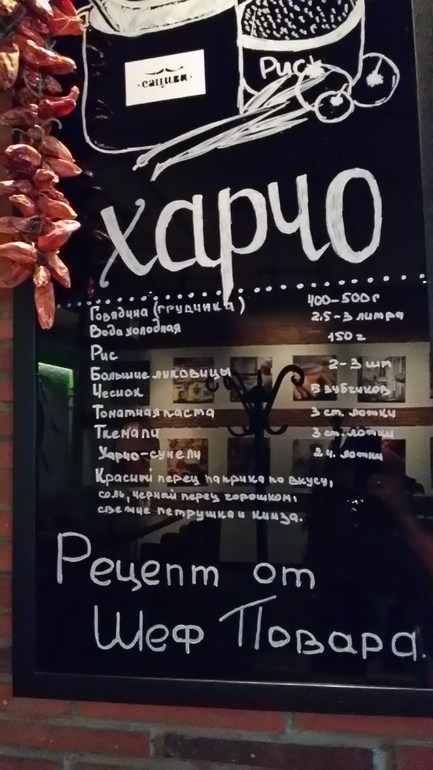 ·сациви·
Рис
харчо
Говядина (грудинка) 400-500г
Вода холодная 2,5-3 литра
Рис 150г
Большие луковицы 2-3 шт
Чеснок 8 зубчиков
Томатная паста 3 ст. ложки
Ткемали 3 ст. ложки
Харчо-сунели 2 ч. ложки
Красный перец паприка по вкусу,
соль, черный перец горошком,
свежие петрушка и кинза.
Рецепт от
Шеф Повара.